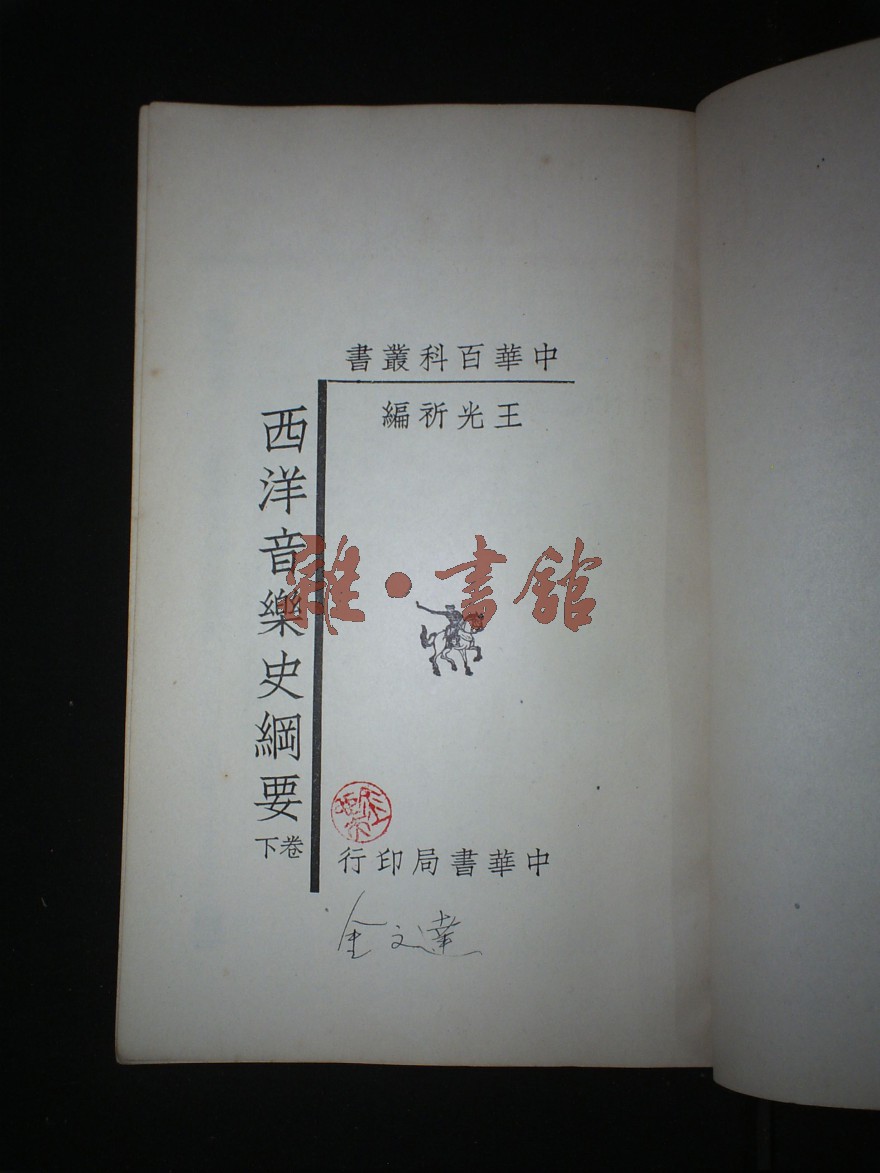 中華百科叢書
王光祈編
西洋音樂史綱要
卷下
雜·書館
中華書局印行
金文達